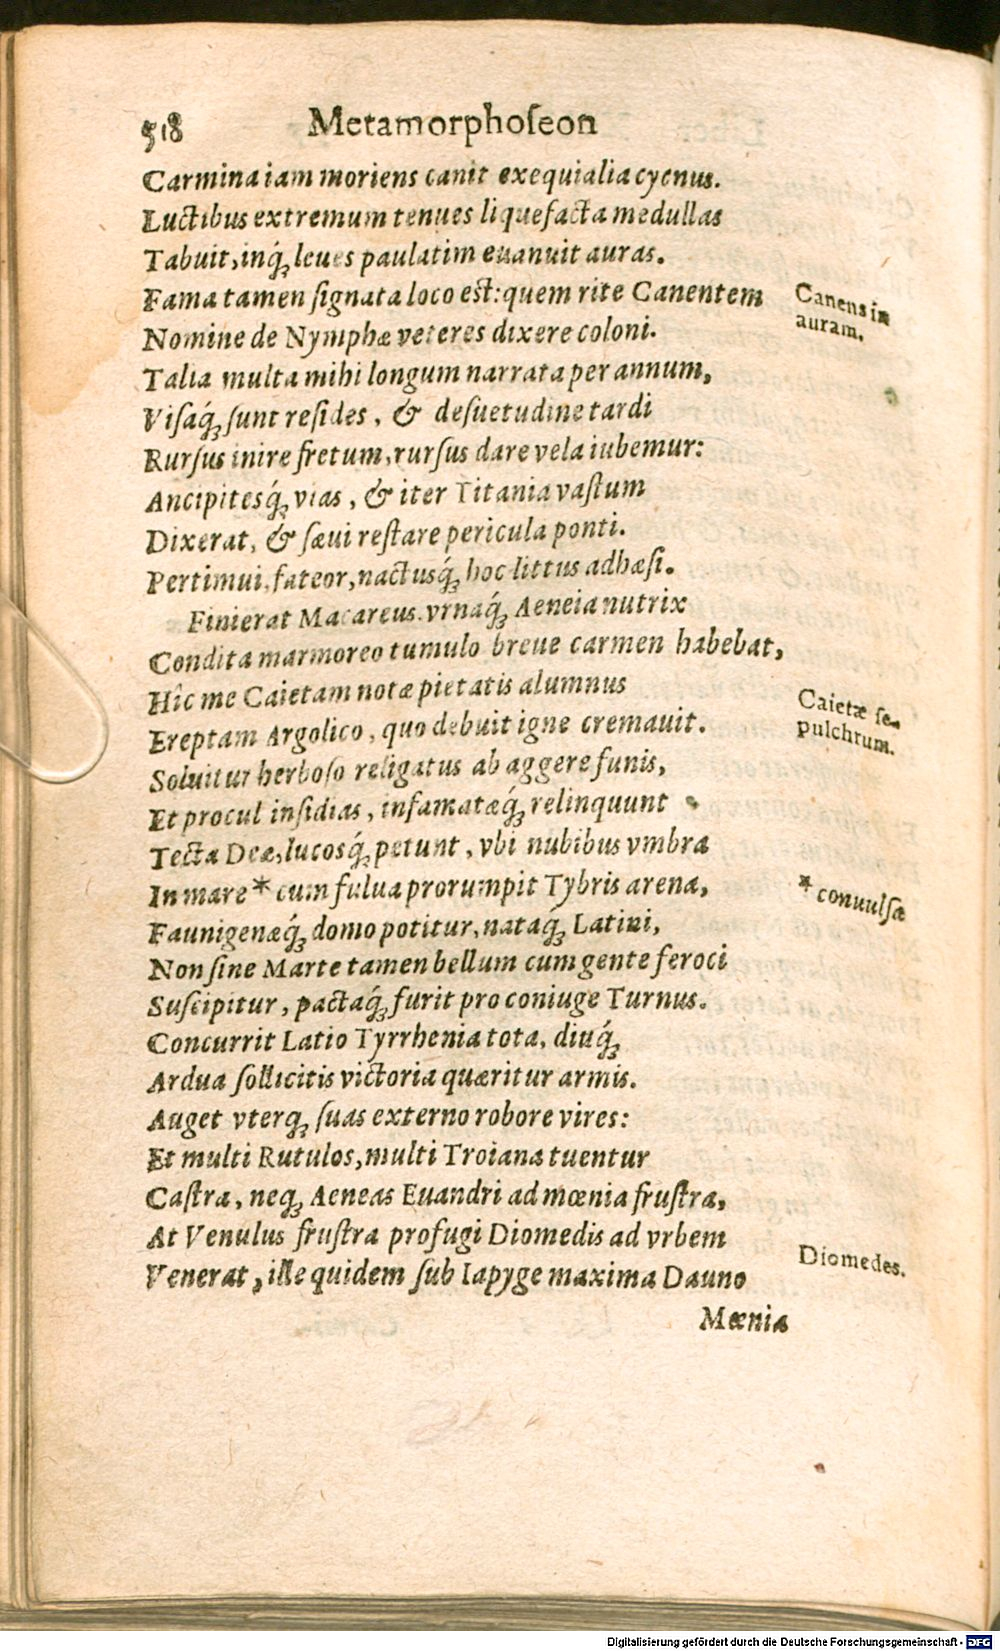 518 Metamorphoſeon
Carmina iam moriens canit exequialia cycnus.
Luctibus extremum tenues liquefacta medullas
Tabuit, inq́ꝫ leues paulatim euanuit auras.
Fama tamen ſignata loco est: quem rite Canentem
Canens in
auram.
Nomine de Nymphæ veteres dixere coloni.
Talia multa mihi longum narrata per annum,
Viſaq́ꝫ ſunt reſides, & deſuetudine tardi
Rurſus inire fretum, rurſus dare vela iubemur:
Ancipitesq́ꝫ vias, & iter Titania vaſtum
Dixerat, & ſæui reſtare pericula ponti.
Pertimui, fateor, nactusq́ꝫ hoc littus adhæſi.
Finierat Macareus. vrnaq́ꝫ Aeneia nutrix
Condita marmoreo tumulo breue carmen habebat,
Hîc me Caietam notæ pietatis alumnus
Caietæ ſe-
pulchrum.
Ereptam Argolico, quo debuit igne cremauit.
Soluitur herboſo religatus ab aggere funis,
Et procul inſidias, infamatæq́ꝫ relinquunt
Tecta Deæ, lucosq́ꝫ petunt, vbi nubibus vmbra
In mare * cum fulua prorumpit Tybris arena,
* conuulſæ
Faunigenæq́ꝫ domo potitur, nataq́ꝫ Latini,
Non ſine Marte tamen bellum cum gente feroci
Suſcipitur, pactaq́ꝫ furit pro coniuge Turnus.
Concurrit Latio Tyrrhenia tota, diuq́ꝫ
Ardua ſollicitis victoria quæritur armis.
Auget vterqꝫ ſuas externo robore vires:
Et multi Rutulos, multi Troiana tuentur
Caſtra, neqꝫ Aeneas Euandri ad mœnia fruſtra,
At Venulus fruſtra profugi Diomedis ad vrbem
Diomedes.
Venerat, ille quidem ſub Iapyge maxima Dauno
Mœnia
Digitalisierung gefördert durch die Deutsche Forschungsgemeinschaft - DFG